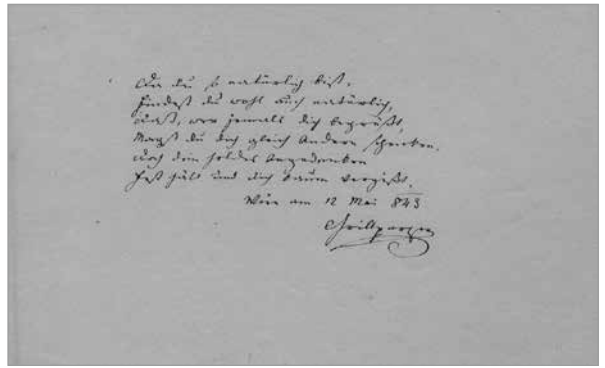 Da du so natürlich bist,
Findest du wohl auch natürlich,
Daß, wer jemals dich begrüßt,
Magst du dich gleich Andern schenken,
Doch dein holdes Angedenken
Fest hält und dich kaum vergißt.
Wien am 12 Mai 843
Grillparzer